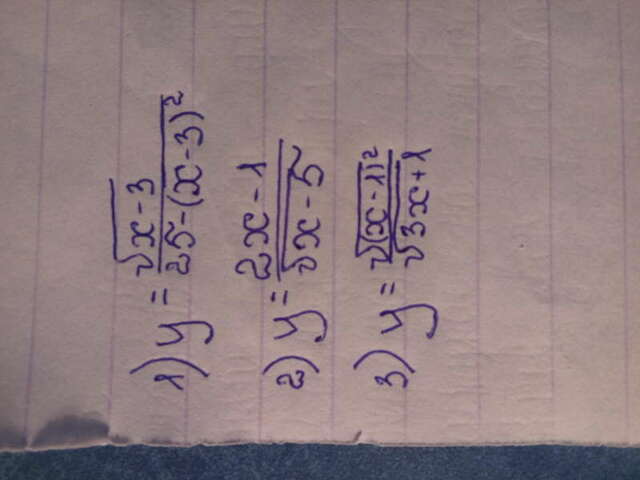 1) y = √(x-3) / (25-(x-3)²)
2) y = (2x-1) / √(x-5)
3) y = √((x-1)²) / √(3x+1)